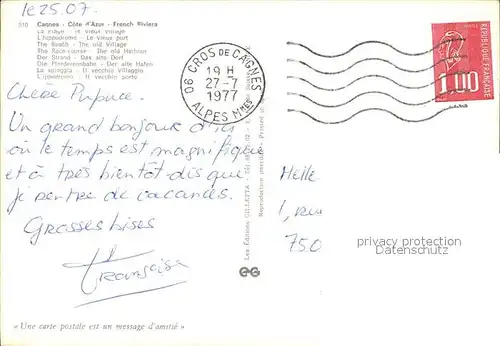 le 25.07.
510 Cannes - Côte d'Azur - French Riviera
La Plage - Le vieux village
L'hippodrome - Le vieux port
The Beach - The old Village
The Race-course - The old Harbour
Der Strand - Das alte Dorf
Der Pferderennbahn - Der alte Hafen
La spiaggia - Il vecchio Villaggio
L'ippodromo - Il vecchio porto
06 CROS DE CAGNES
19 H
27-7
1977
ALPES Mmes
RÉPUBLIQUE FRANÇAISE
1,00
Chère
Un grand bonjour d'ici
où le temps est magnifique
et à très bientôt dis que
je rentre de vacances.
Grosses bises
Françoise
Melle
1, rue
750
privacy protection
Datenschutz
Les Éditions GILLETTA
Reproduction interdite
EG
« Une carte postale est un message d'amitié »